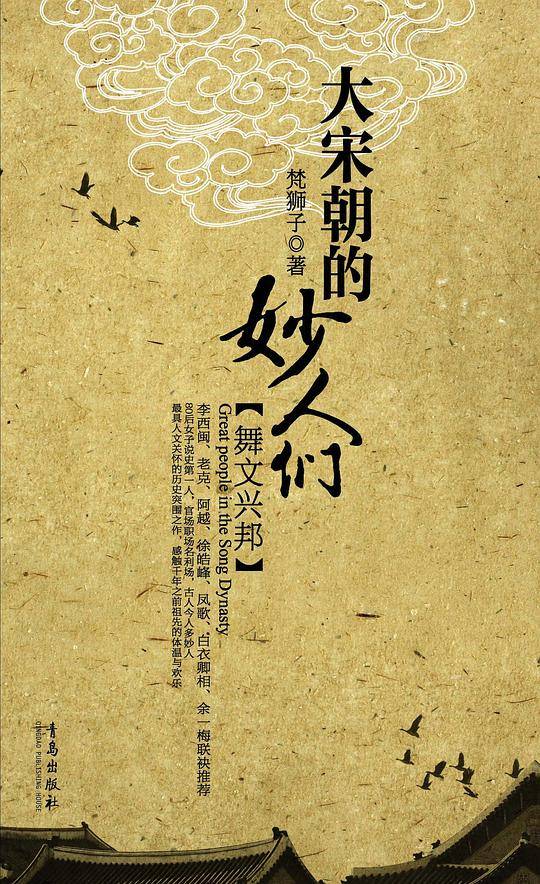 大宋朝的
妙人们
梵狮子◎著
【舞文兴邦】
Great people in the Song Dynasty
李西闽、老克、阿越、徐皓峰、凤歌、白衣卿相、余一梅联袂推荐
80后女子说史第一人，官场职场名利场，古人今人多妙人
最具人文关怀的历史突围之作，感触千年之前祖先的体温与欢乐
青岛出版社
QINGDAO PUBLISHING HOUSE